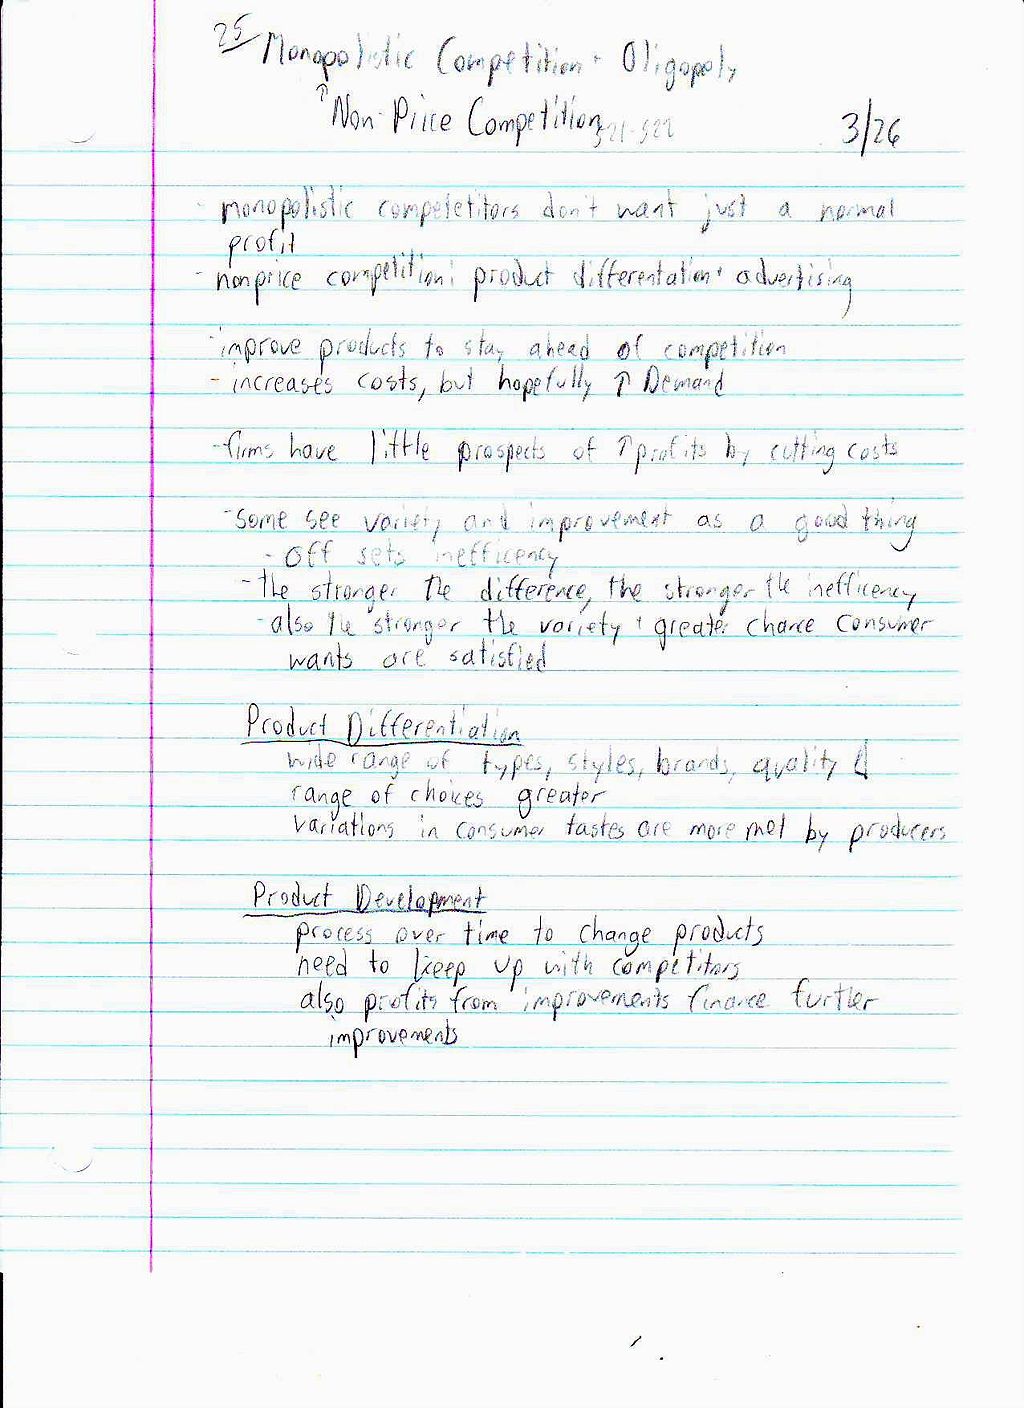 25 Monopolistic Competition + Oligopoly
↑ Non-Price Competition 521-522
3/26
- monopolistic competetitors don't want just a normal
profit
- nonprice competition: product differentation + advertising
- improve products to stay ahead of competition
- increases costs, but hopefully ↑ Demand
- firms have little prospects of ↑ profits by cutting costs
- some see variety and improvement as a good thing
- off sets inefficency
- the stronger the difference, the stronger the inefficency
- also the stronger the variety + greater chance consumer
wants are satisfied
Product Differentiation
wide range of types, styles, brands, quality
range of choices greater
variations in consumer tastes are more met by producers
Product Development
process over time to change products
need to keep up with competitors
also profits from improvements finance further
improvements